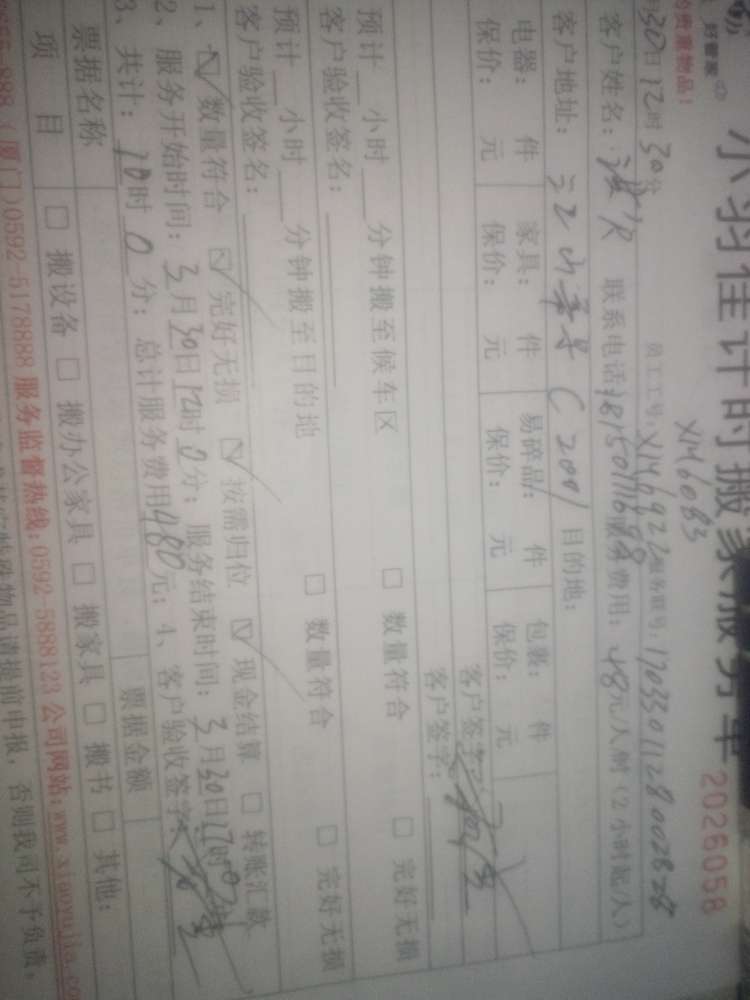 好管家
小羽佳计时搬家服务单 2026058
的贵重物品!
XM6083
30日12时30分 员工工号: XM6927 服务账号: 1703301128002828
客户姓名: 联系电话 服务费用: 48元/人/时(2小时起/人)
客户地址: C2001 目的地:
电器: 件 家具: 件 易碎品: 件 包裹: 件
保价: 元 保价: 元 保价: 元 保价: 元
客户签字:
客户签字:
预计 小时 分钟搬至候车区 □ 数量符合 □ 完好无损
客户验收签名:
预计 小时 分钟搬至目的地 □ 数量符合 □ 完好无损
客户验收签名:
1、☑ 数量符合 ☑ 完好无损 ☑ 按需归位 ☑ 现金结算 □ 转账汇款
2、服务开始时间: 3月30日12时0分; 服务结束时间: 3月30日17时0分
3、共计: 10时0分; 总计服务费用480元; 4、客户验收签字:
票据名称 票据金额
项 目 □ 搬设备 □ 搬办公家具 □ 搬家具 □ 搬书 □ 其他:
(厦门)0592-5178888 服务监督热线:0592-5888123 公司网站:www.xiaoyujia.co
物品请提前申报,否则我司不予负责。